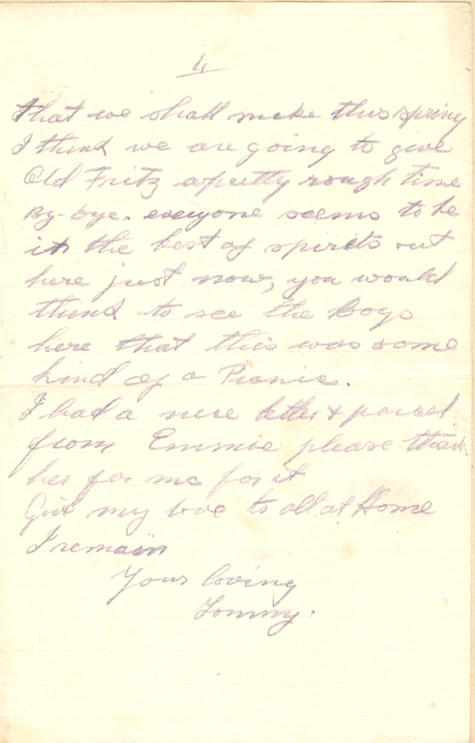 4
that we shall make this spring
I think we are going to give
Old Fritz a pretty rough time
By-bye. everyone seems to be
in the best of spirits out
here just now, you would
think to see the Boys
here that this was some
kind of a Picnic.
I had a nice letter & parcel
from Emmie please thank
her for me for it
Give my love to all at Home
I remain
Your loving
Tommy.